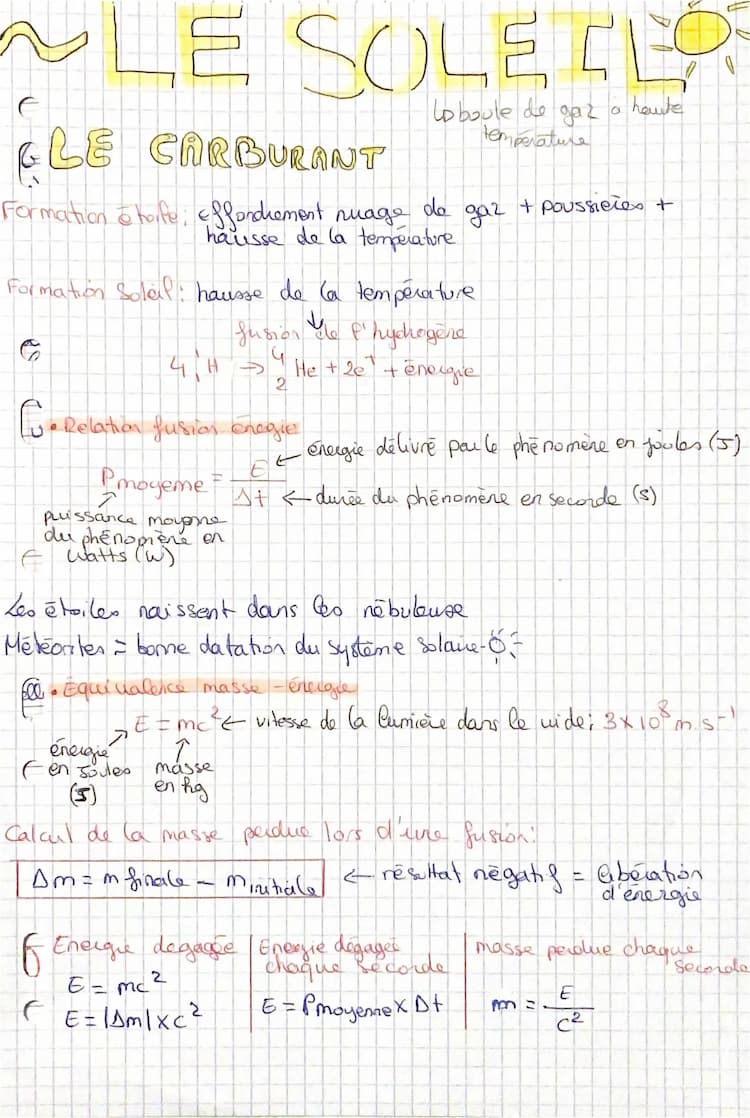 ~ LE SOLEIL
↳ boule de gaz à haute
température
LE CARBURANT
Formation étoile : effondrement nuage de gaz + poussières +
hausse de la température
Formation Soleil : hausse de la température
↓
fusion de l'hydrogène
4 ¹₁H → ⁴₂He + 2e⁺ + énergie
• Relation fusion énergie
Pmoyenne = E/Δt
← énergie délivré par le phénomène en joules (J)
← durée du phénomène en seconde (s)
puissance moyenne
du phénomène en
Watts (W)
Les étoiles naissent dans les nébuleuse
Météorites = bonne datation du système solaire
• Equivalence masse - énergie
E = mc² ← vitesse de la lumière dans le vide : 3 × 10⁸ m.s⁻¹
énergie
en Joules
(J)
masse
en kg
Calcul de la masse perdue lors d'une fusion :
Δm = m finale - m initiale ← résultat négatif = libération
d'énergie
Energie dégagée
E = mc²
E = |Δm| × c²
Energie dégagée
chaque seconde
E = Pmoyenne × Δt
masse perdue chaque
seconde
m = E/c²